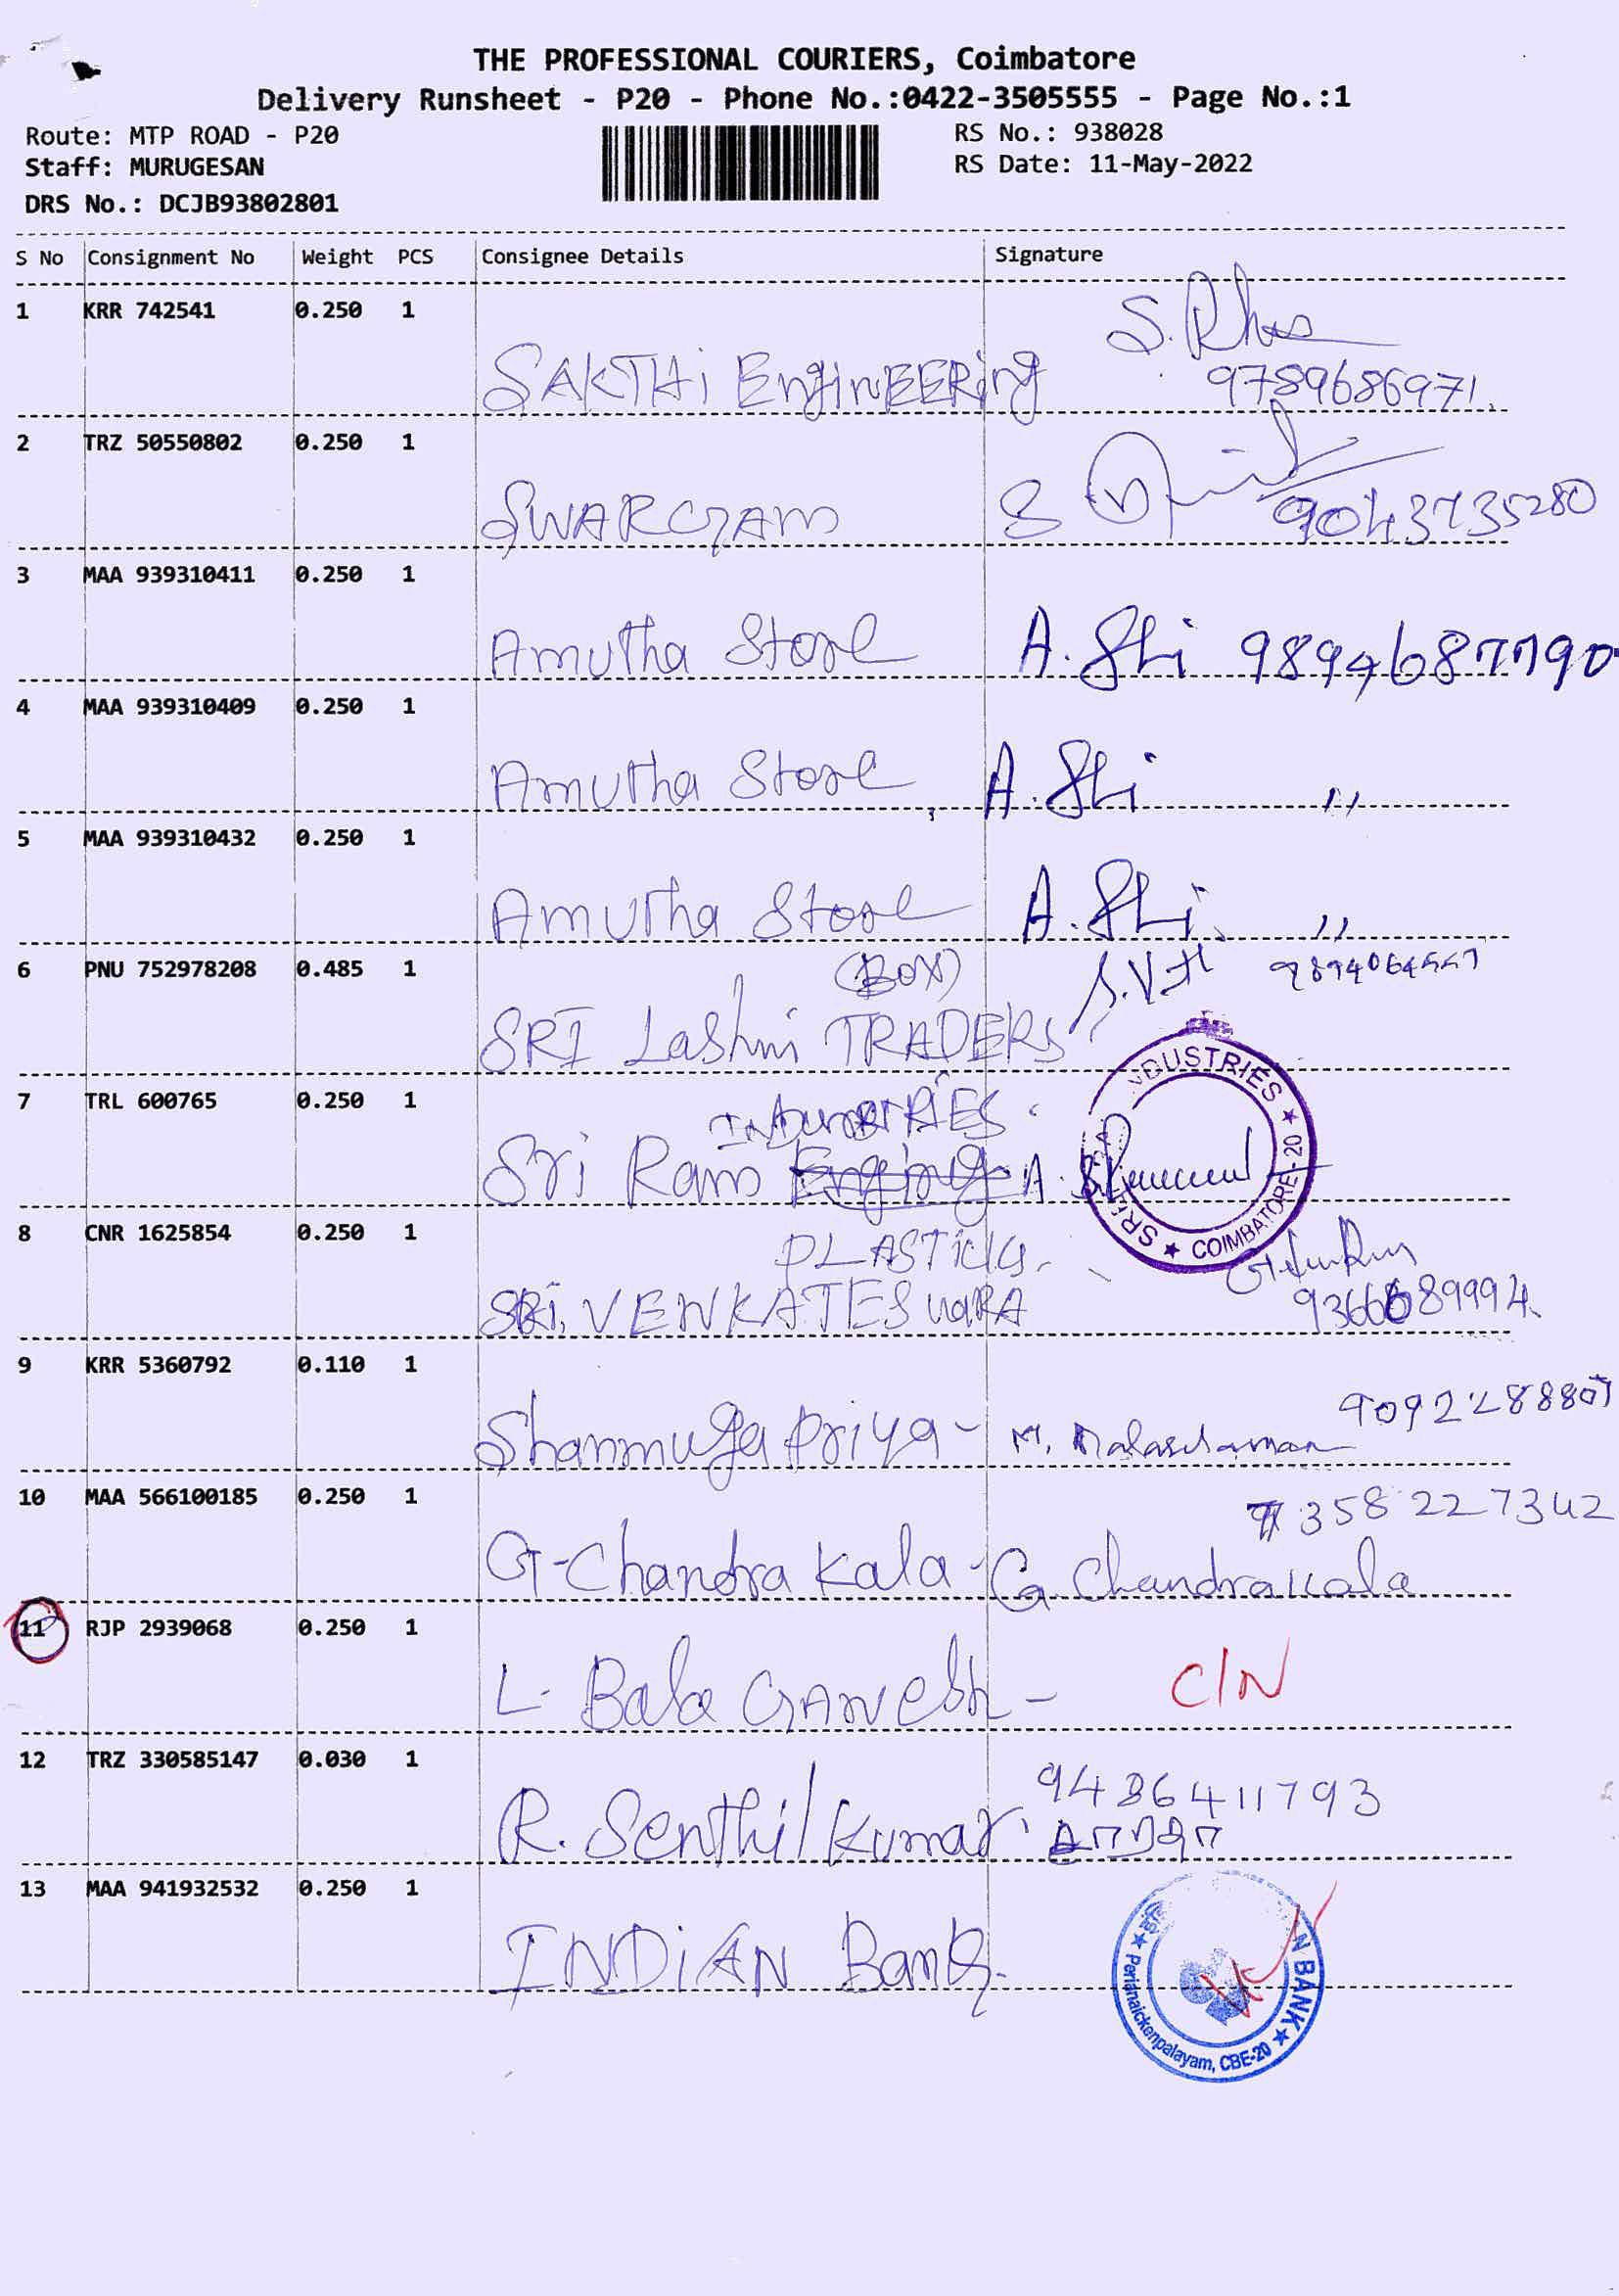 THE PROFESSIONAL COURIERS, Coimbatore
Delivery Runsheet - P20 - Phone No.:0422-3505555 - Page No.:1
Route: MTP ROAD - P20
RS No.: 938028
Staff: MURUGESAN
RS Date: 11-May-2022
DRS No.: DCJB93802801
S No Consignment No Weight PCS Consignee Details Signature
1 KRR 742541 0.250 1
SAKTHi EngiNEERing 9789686971
2 TRZ 50550802 0.250 1
SWARGAM 9043735280
3 MAA 939310411 0.250 1
Amutha Store A. 9894687790
4 MAA 939310409 0.250 1
Amutha Store A. "
5 MAA 939310432 0.250 1
Amutha Store A. "
6 PNU 752978208 0.485 1
(BOX)
SRI Lashmi TRADERS
7 TRL 600765 0.250 1
Sri Ram
INDUSTRIES
COIMBATORE-20
8 CNR 1625854 0.250 1
PLASTICKS
SRi. VENKATESwaRA
9 KRR 5360792 0.110 1
Shanmuga Priya -
10 MAA 566100185 0.250 1
7358227342
G-Chandra Kala - G. Chandrakala
11 RJP 2939068 0.250 1
L. Bala GANesh - C/N
12 TRZ 330585147 0.030 1
9486411793
R. Senthil Kumar
13 MAA 941932532 0.250 1
INDiAN Bank.
N BANK
Perianaickenpalayam, CBE-20